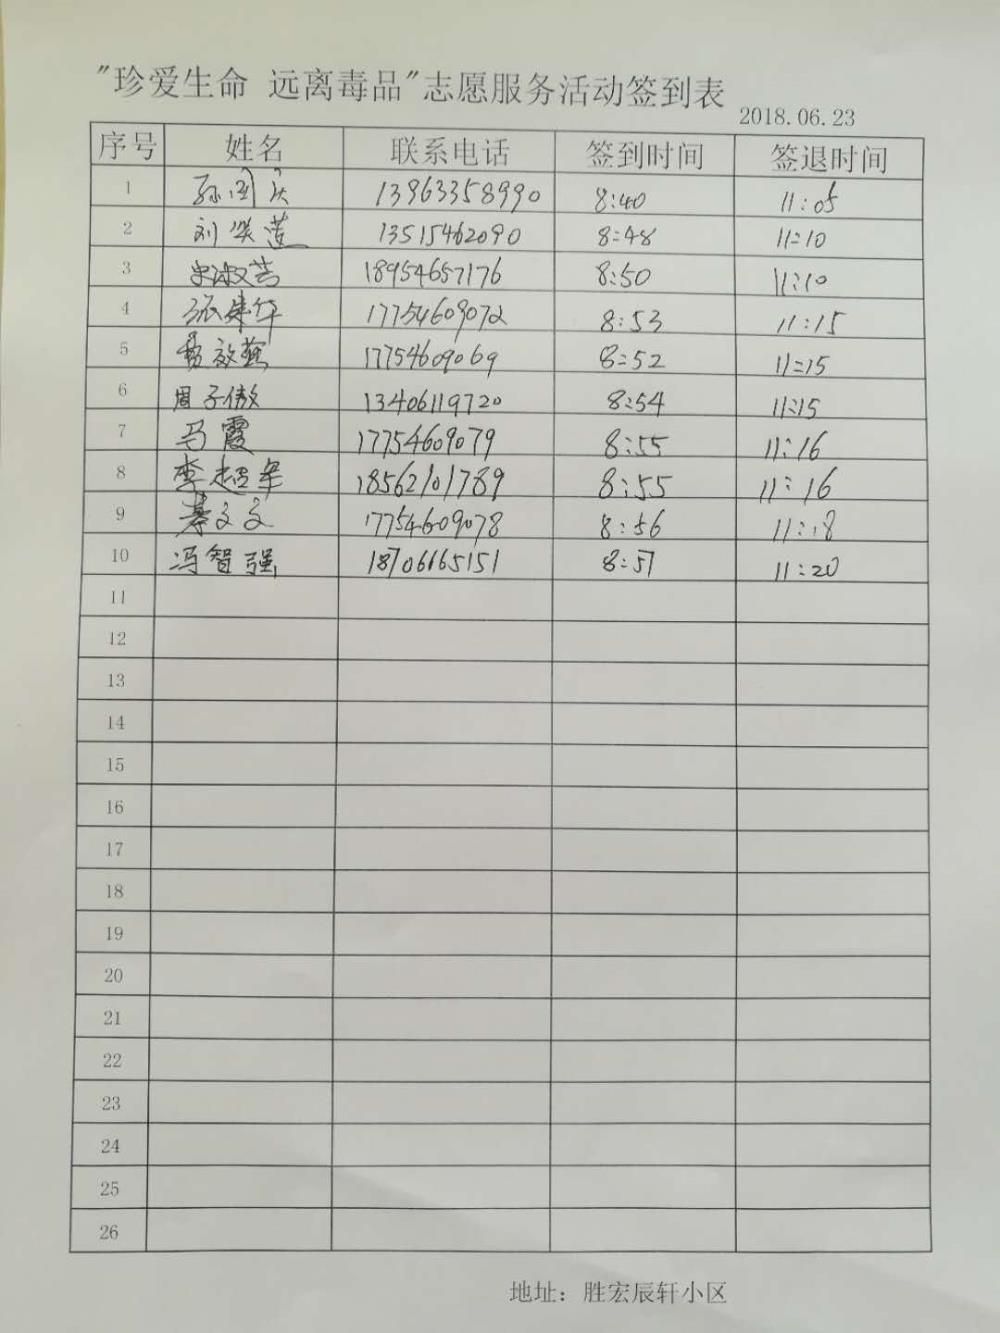 "珍爱生命 远离毒品"志愿服务活动签到表
2018.06.23
序号 姓名 联系电话 签到时间 签退时间
1 孙国庆 13963358990 8:40 11:05
2 刘 莲 13515462090 8:48 11:10
3 史淑芸 18954657176 8:50 11:10
4 张建华 17754609072 8:53 11:15
5 效燕 17754609069 8:52 11:15
6 周子傲 13406119720 8:54 11:15
7 马霞 17754609079 8:55 11:16
8 李超年 18562101789 8:55 11:16
9 綦文文 17754609078 8:56 11:18
10 冯智强 18706665151 8:57 11:20
11
12
13
14
15
16
17
18
19
20
21
22
23
24
25
26
地址：胜宏辰轩小区